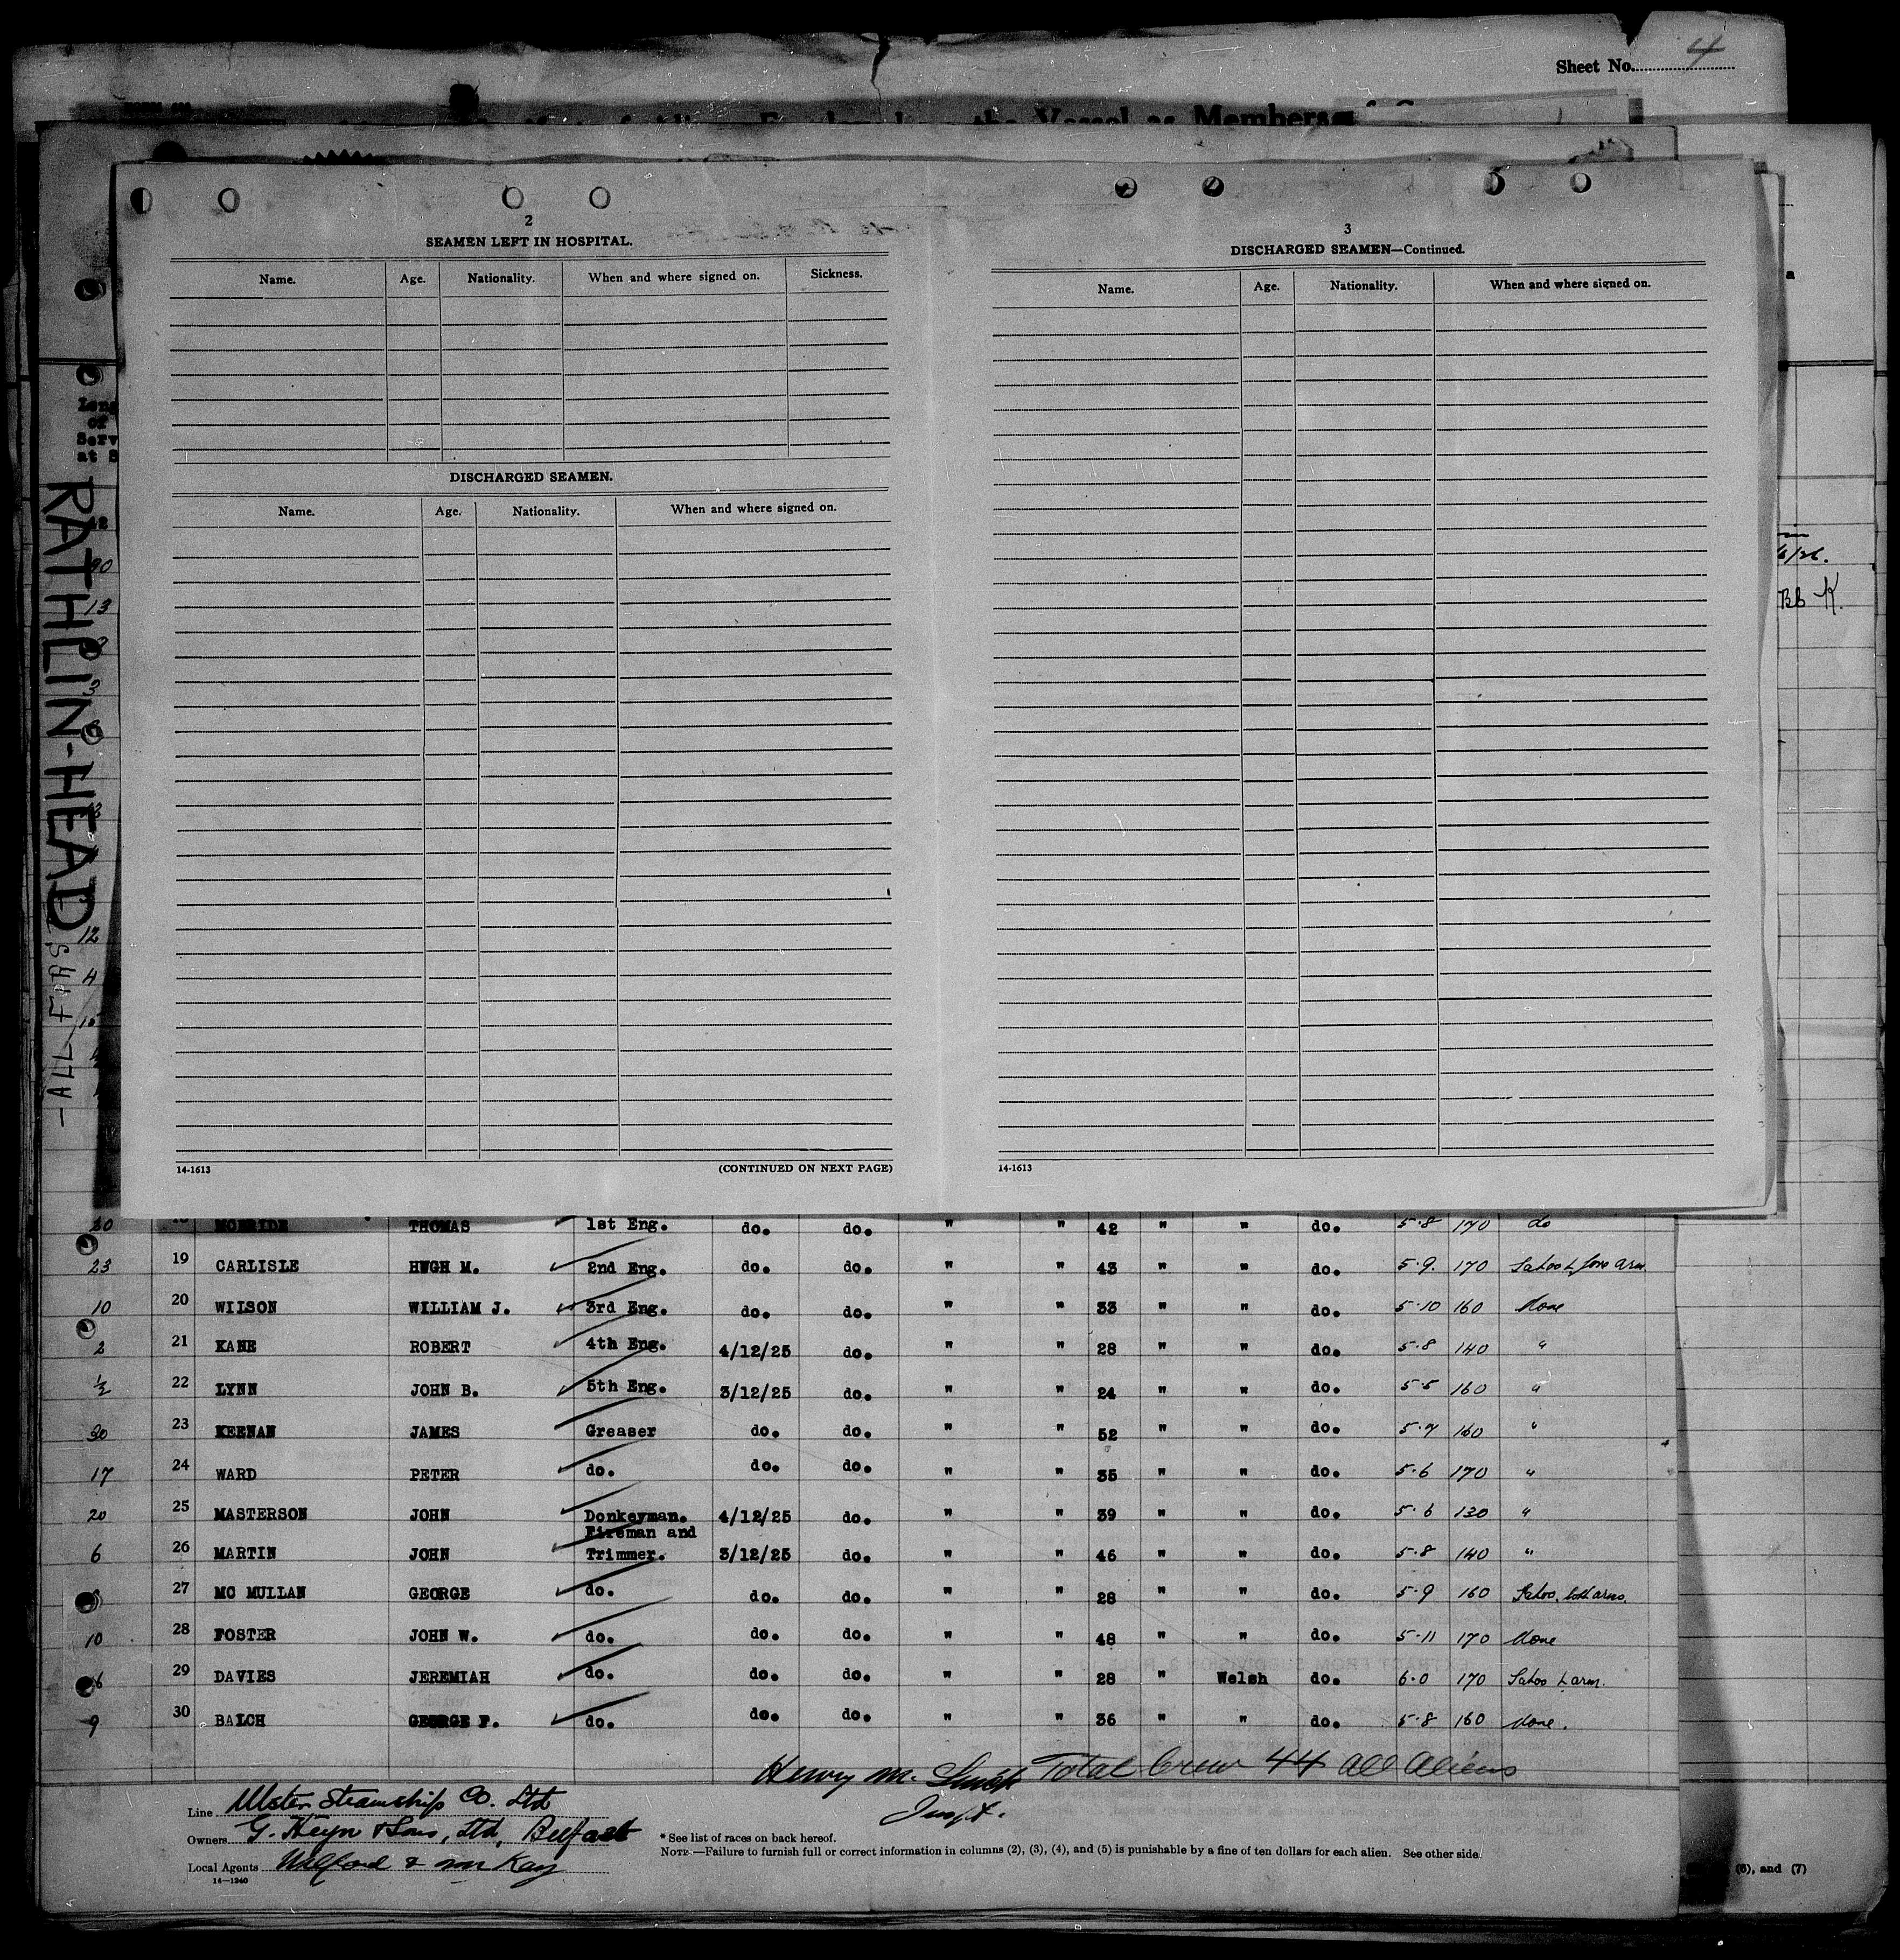 Sheet No. 4
the Vessel as Members
2
SEAMEN LEFT IN HOSPITAL.
Name. Age. Nationality. When and where signed on. Sickness.
DISCHARGED SEAMEN.
Name. Age. Nationality. When and where signed on.
14-1613 (CONTINUED ON NEXT PAGE)
3
DISCHARGED SEAMEN—Continued.
Name. Age. Nationality. When and where signed on.
14-1613
RATHLIN-HEAD
20 MCBRIDE THOMAS 1st Eng. do. do. " " 42 " " do. 5·8 170 do
23 19 CARLISLE HUGH M. 2nd Eng. do. do. " " 43 " " do. 5·9. 170
10 20 WILSON WILLIAM J. 3rd Eng. do. do. " " 33 " " do. 5·10 160 None
2 21 KANE ROBERT 4th Eng. 4/12/25 do. " " 28 " " do. 5·8 140 "
½ 22 LYNN JOHN B. 5th Eng. 3/12/25 do. " " 24 " " do. 5·5 160 "
30 23 KEENAN JAMES Greaser do. do. " " 52 " " do. 5·7 160 "
17 24 WARD PETER do. do. do. " " 35 " " do. 5·6 170 "
20 25 MASTERSON JOHN Donkeyman. 4/12/25 do. " " 39 " " do. 5·6 130 "
Fireman and
6 26 MARTIN JOHN Trimmer. 3/12/25 do. " " 46 " " do. 5·8 140 "
27 MC MULLAN GEORGE do. do. do. " " 28 " " do. 5·9 160 Satoo. both arms.
10 28 FOSTER JOHN W. do. do. do. " " 48 " " do. 5·11 170 None
29 DAVIES JEREMIAH do. do. do. " " 28 " Welsh do. 6·0 170 Satoo L arm.
9 30 BALCH GEORGE F. do. do. do. " " 36 " " do. 5·8 160 None.
Henry M. Smith Total Crew 44 all Aliens
Inspt.
Line Ulster Steamship Co. Ltd
Owners G. Heyn & Sons, Ltd, Belfast
Local Agents
14—1240
* See list of races on back hereof.
NOTE.—Failure to furnish full or correct information in columns (2), (3), (4), and (5) is punishable by a fine of ten dollars for each alien. See other side.
(6), and (7)